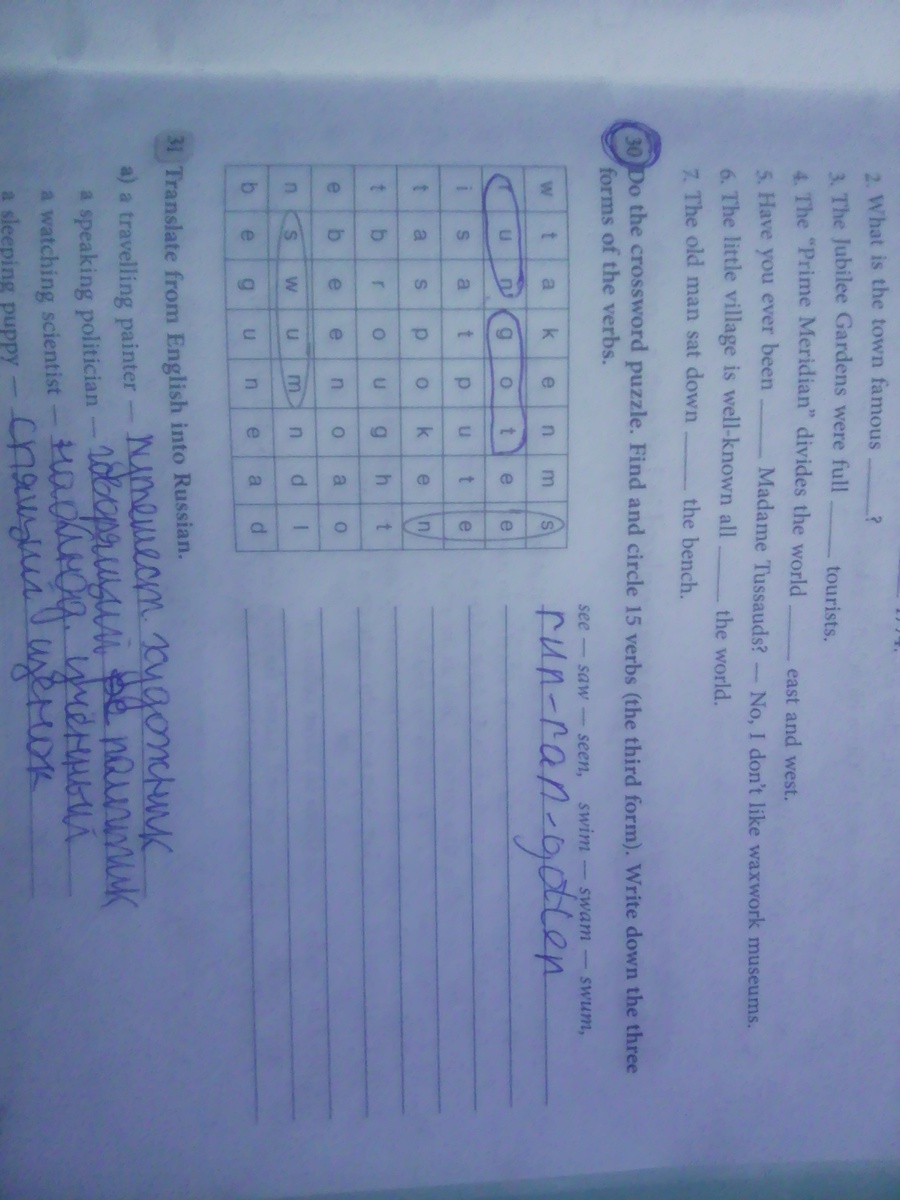 2. What is the town famous ____?
3. The Jubilee Gardens were full ____ tourists.
4. The “Prime Meridian” divides the world ____ east and west.
5. Have you ever been ____ Madame Tussauds? — No, I don't like waxwork museums.
6. The little village is well-known all ____ the world.
7. The old man sat down ____ the bench.
30 Do the crossword puzzle. Find and circle 15 verbs (the third form). Write down the three
forms of the verbs.
w t a k e n m s
r u n g o t e e
i s a t p u t e
t a s p o k e n
t b r o u g h t
e b e e n o a o
n s w u m n d l
b e g u n e a d
see — saw — seen, swim — swam — swum,
run-ran-gotten
31 Translate from English into Russian.
a) a travelling painter — путешест. художник
a speaking politician — говорящий политик
a watching scientist — наблюд. учённый
a sleeping puppy — спящий щенок